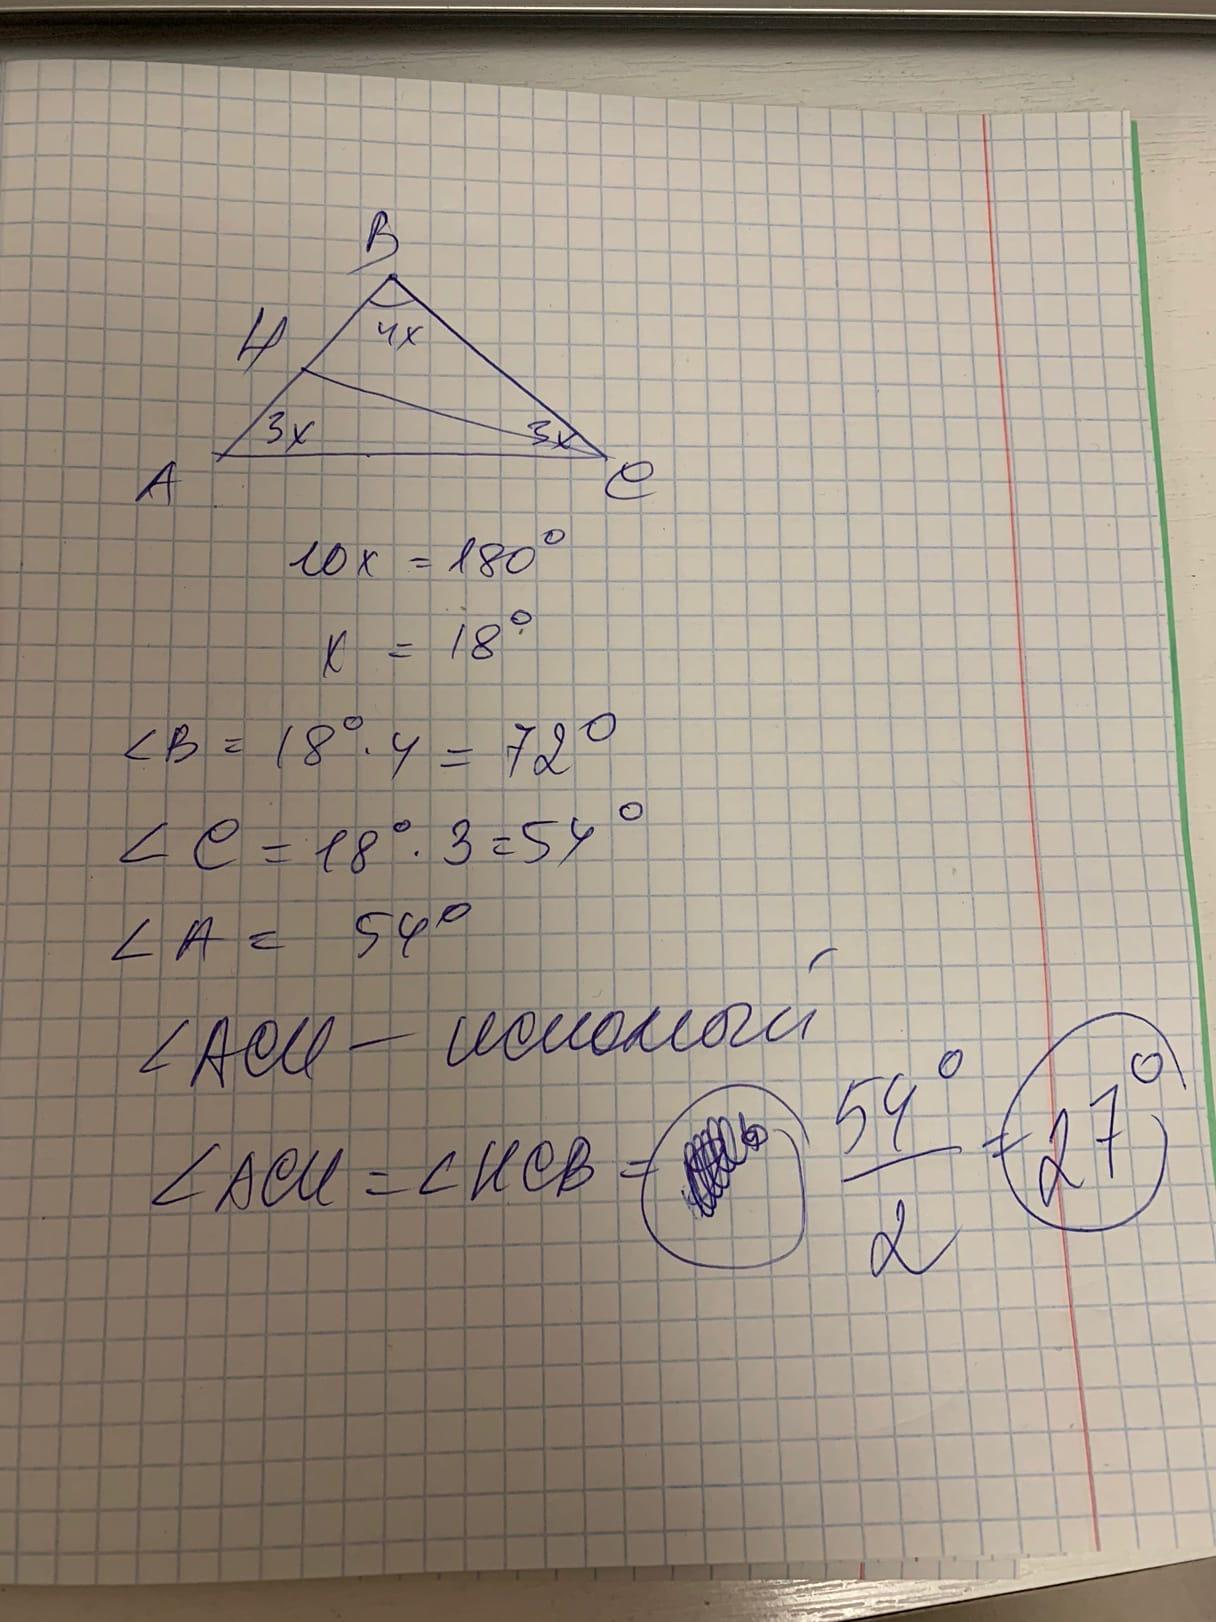 B
H
4x
3x
3x
A
C
10x = 180°
x = 18°
∠B = 18° · 4 = 72°
∠C = 18° · 3 = 54°
∠A = 54°
∠ACH — искомый
∠ACH = ∠HCB = 54°/2 = 27°